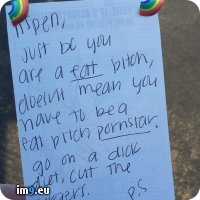 Aspen,
just bc you
are a fat bitch,
doesnt mean you
have to be a
fat bitch pornstar.
go on a dick
diet, cut the
P.S
im9.eu